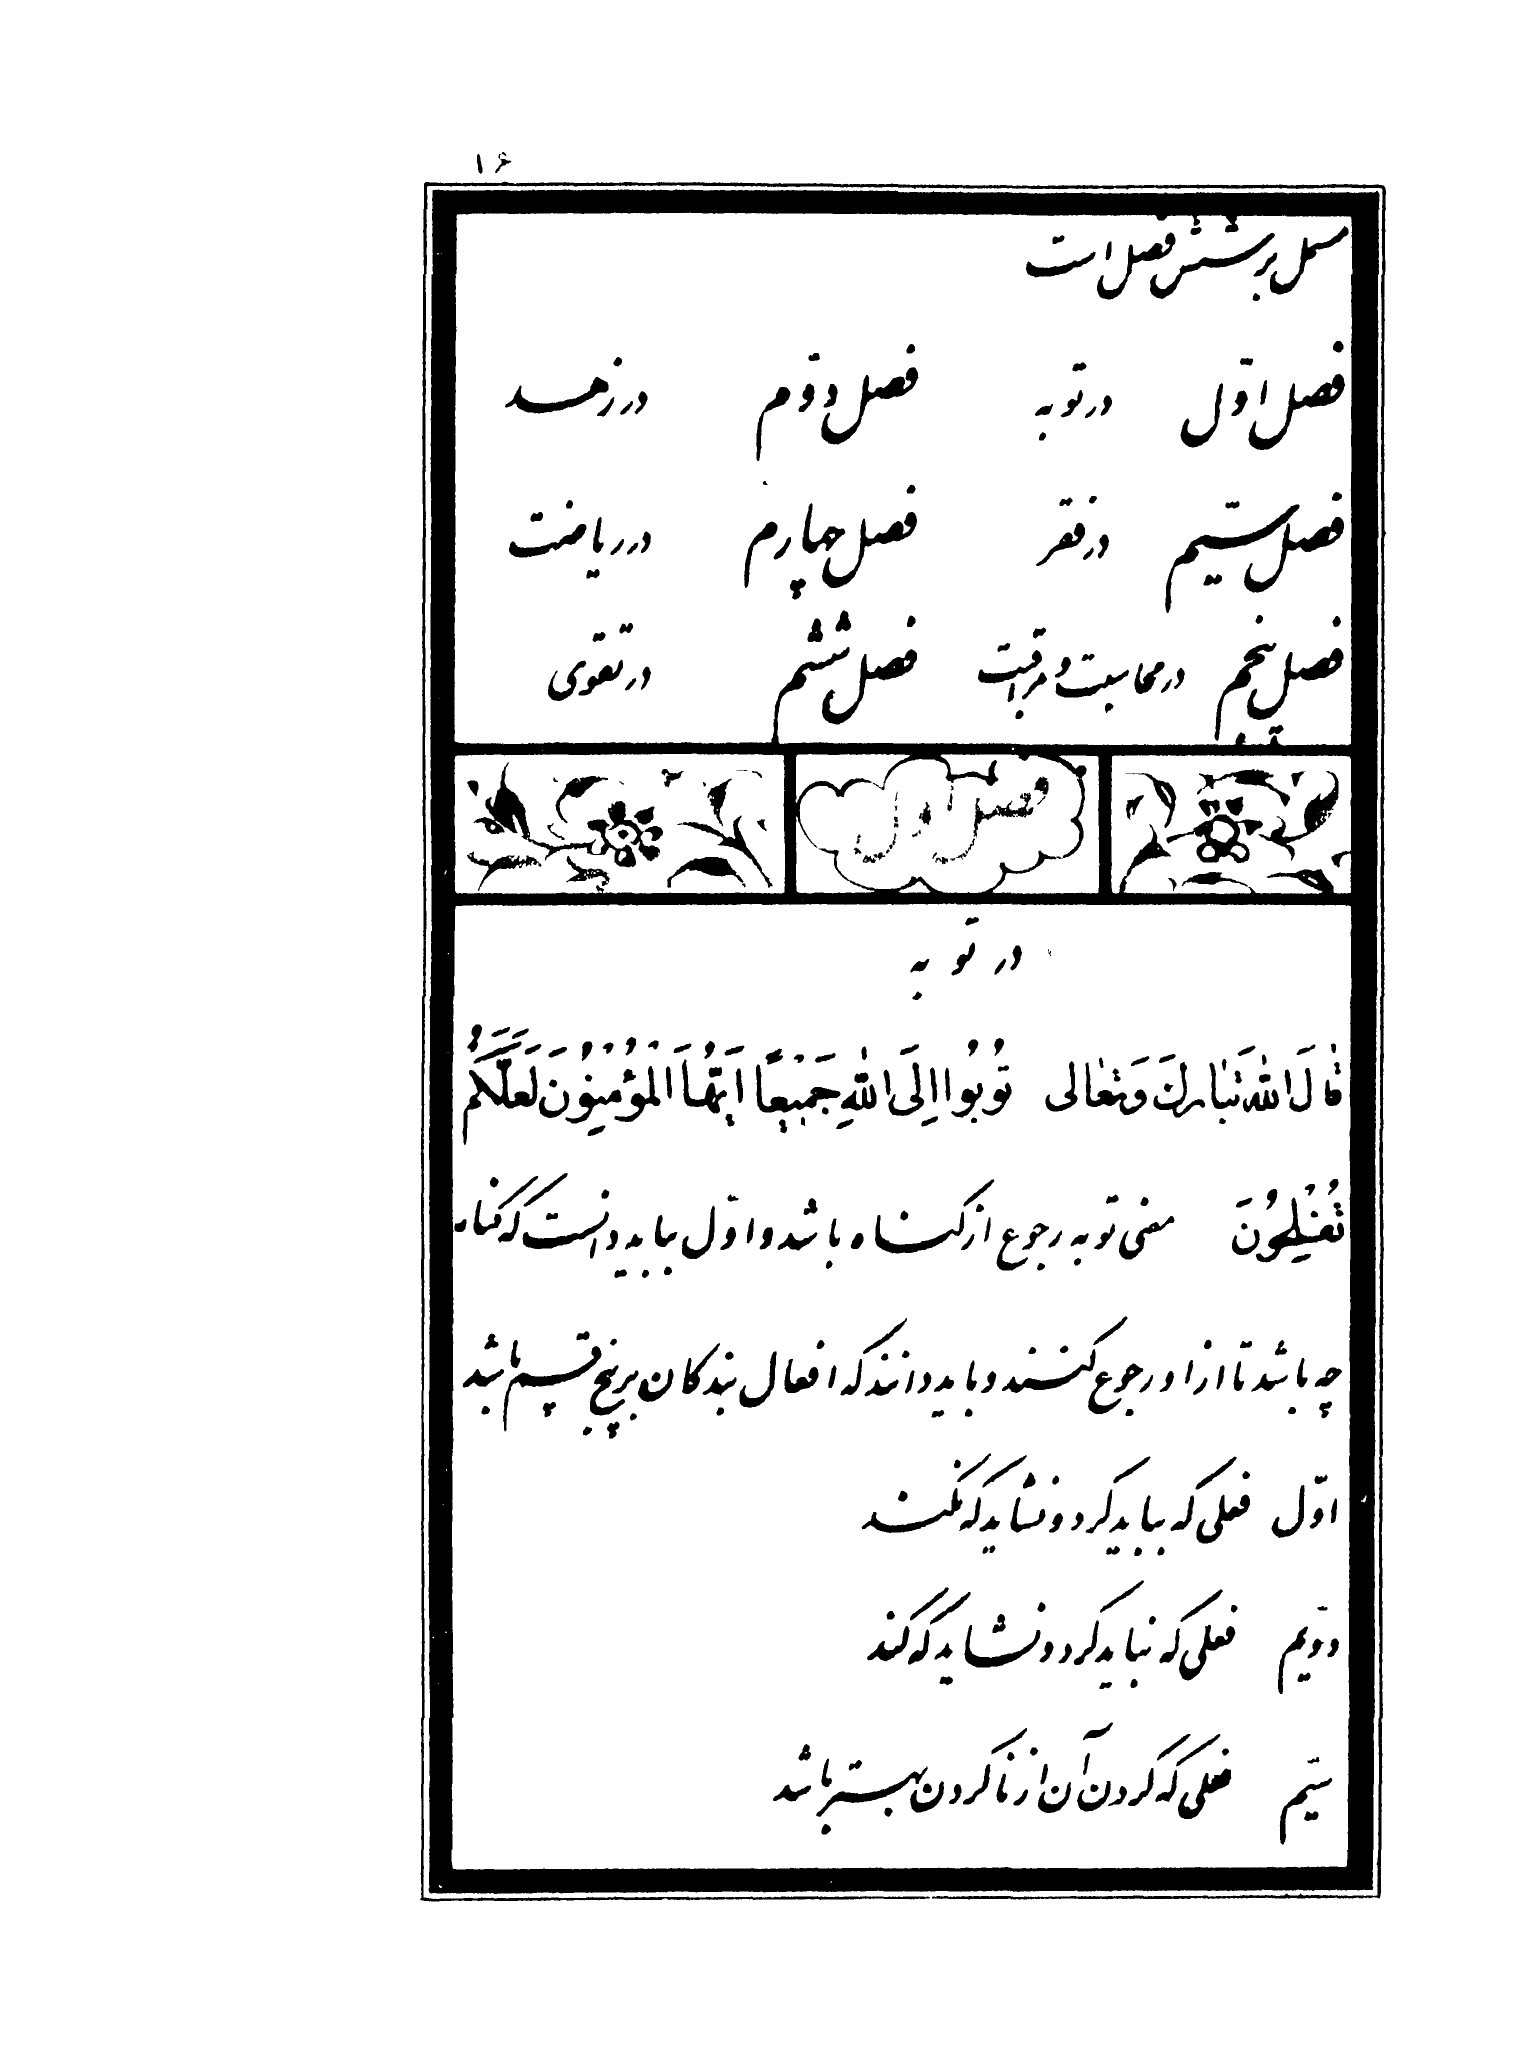 ۱۶
مشمل بر شش فصل است
فصل اوّل در توبه فصل دوّم در زهد
فصل سیّم در فقر فصل چهارم در ریاضت
فصل پنجم در محاسبت و مراقبت فصل ششم در تقوی
فصل اول
در توبه
قٰالَ اللّٰهُ تَبٰارَكَ وَتَعٰالى تُوبُوا اِلَى اللّٰهِ جَمٖيعًا اَيُّهَا الْمُؤْمِنُونَ لَعَلَّكُمْ
تُفْلِحُونَ معنی توبه رجوع از کناه باشد و اوّل بباید دانست که کناه
چه باشد تا از او رجوع کنند و باید دانند که افعال بندکان بر پنج قسم باشد
اوّل فعلی که بباید کرد و نشاید که نکند
دوّیم فعلی که نباید کرد و نشاید که کند
سیّم فعلی که کردن آن از ناکردن بهتر باشد